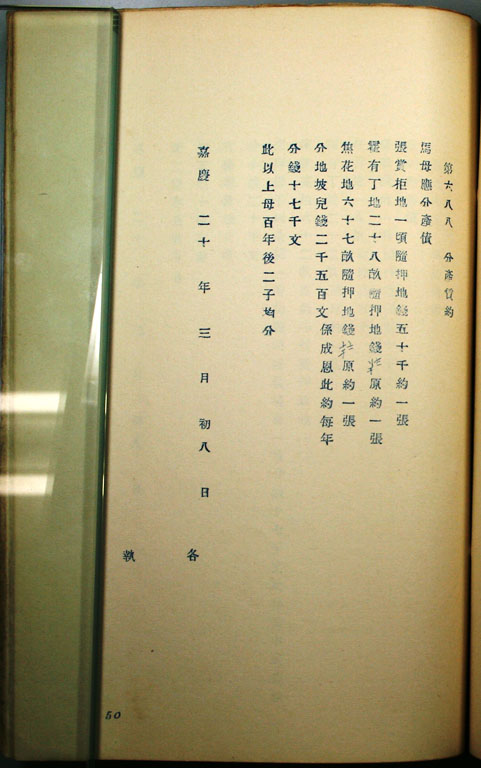 第六八八 分產質約
馬母應分產債
張賞拒地一頃隨押地錢五十千約一張
霍有丁地二十八畝隨押地錢 原約一張
焦花地六十七畝隨押地錢 原約一張
分地坡兒錢二千五百文係成恩此約每年
分錢十七千文
此以上母百年後二子均分
嘉慶二十年三月初八日
各
執
50